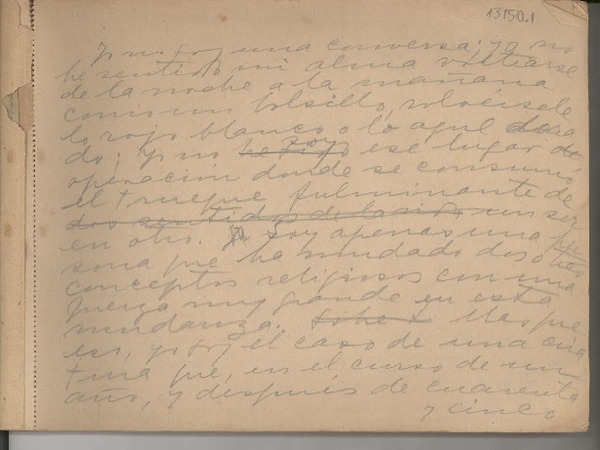 13150.1
Yo no soy una conversa; yo no
he sentido mi alma voltearse
de la noche a la mañana
como un bolsillo, volviéndosele
lo rojo blanco o lo azul dora
do; yo no soy ese lugar de
operacion donde se consumó
el trueque fulminante de
un ser
en otro. Soy apenas una per
sona que ha mudado dos o tres
conceptos religiosos con una
fuerza muy grande en esta
mudanza. Mas que
eso, yo soy el caso de una cria
tura que, en el curso de un
año, y después de cuarenta
y cinco